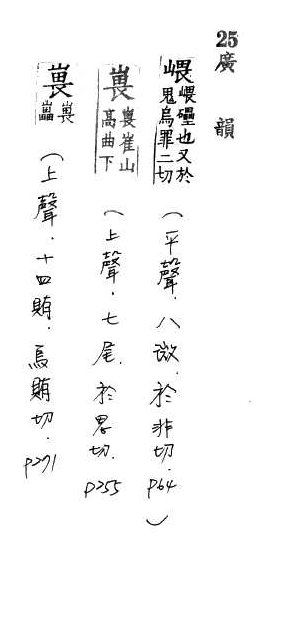 25
廣韻
㟪㟪礧也又於鬼烏罪二切（平聲．八微．於非切．P64）
嵔嵔崔山高曲下（上聲．七尾．於畏切．P255
嵔嵔㠥（上聲．十四賄．烏賄切．P271